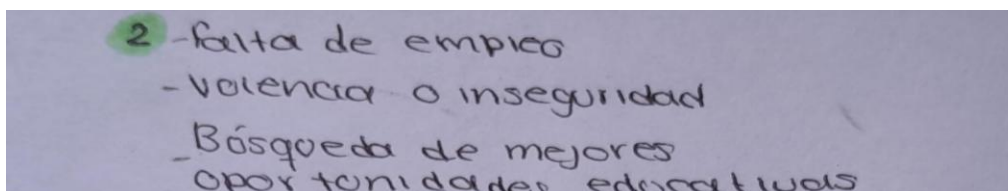 2 -falta de empleo
-volencia o inseguridad
-Bósqueda de mejores
oportunidades educativas